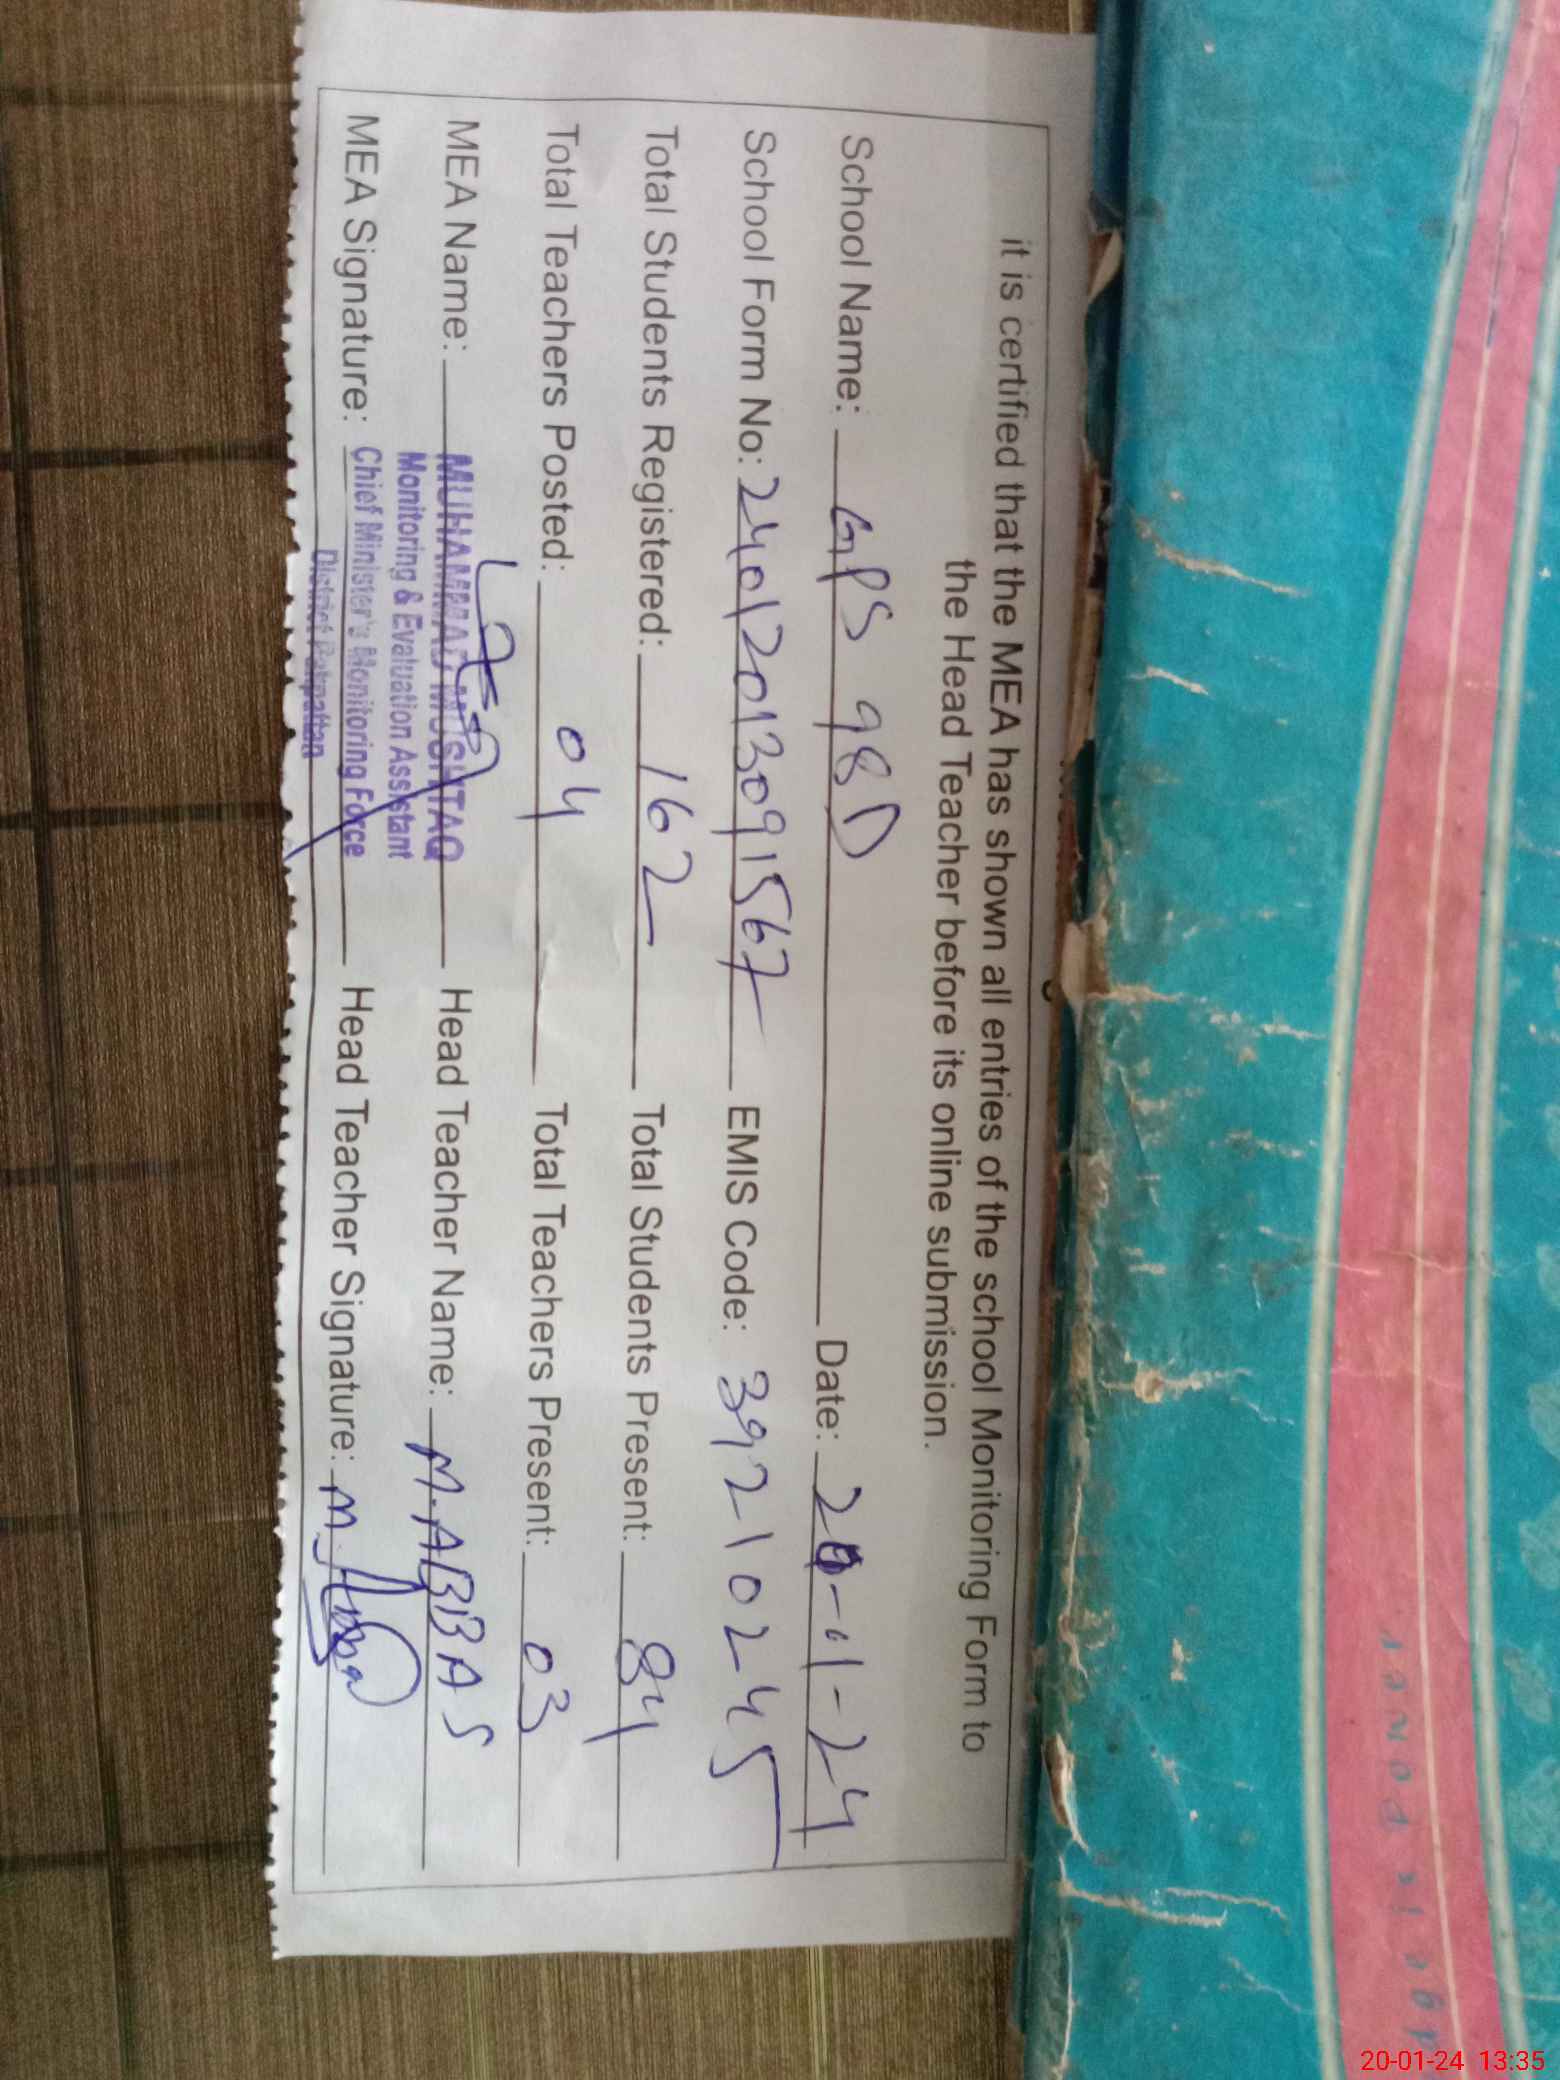 it is certified that the MEA has shown all entries of the school Monitoring Form to
the Head Teacher before its online submission.
School Name: GPS 98D Date: 20-01-24
School Form No: 2401201309 1567 EMIS Code: 39210245
Total Students Registered: 162 Total Students Present: 84
Total Teachers Posted: 04 Total Teachers Present: 03
MEA Name: MUHAMMAD MUSHTAQ Head Teacher Name: M.ABBAS
Monitoring & Evaluation Assistant
MEA Signature: Chief Minister's Monitoring Force Head Teacher Signature: M.
District Pakpattan
Power
20-01-24 13:35